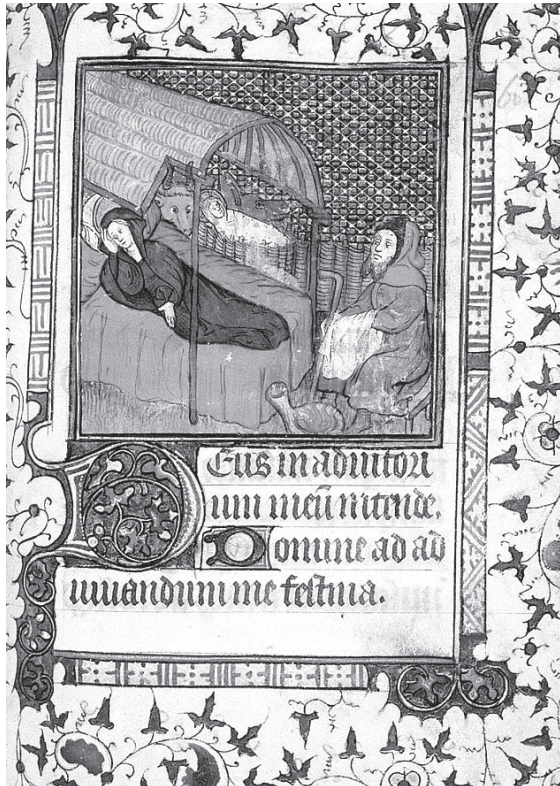 Deus in adiutori
um meū intende.
Domine ad ad
iuuandum me festina.